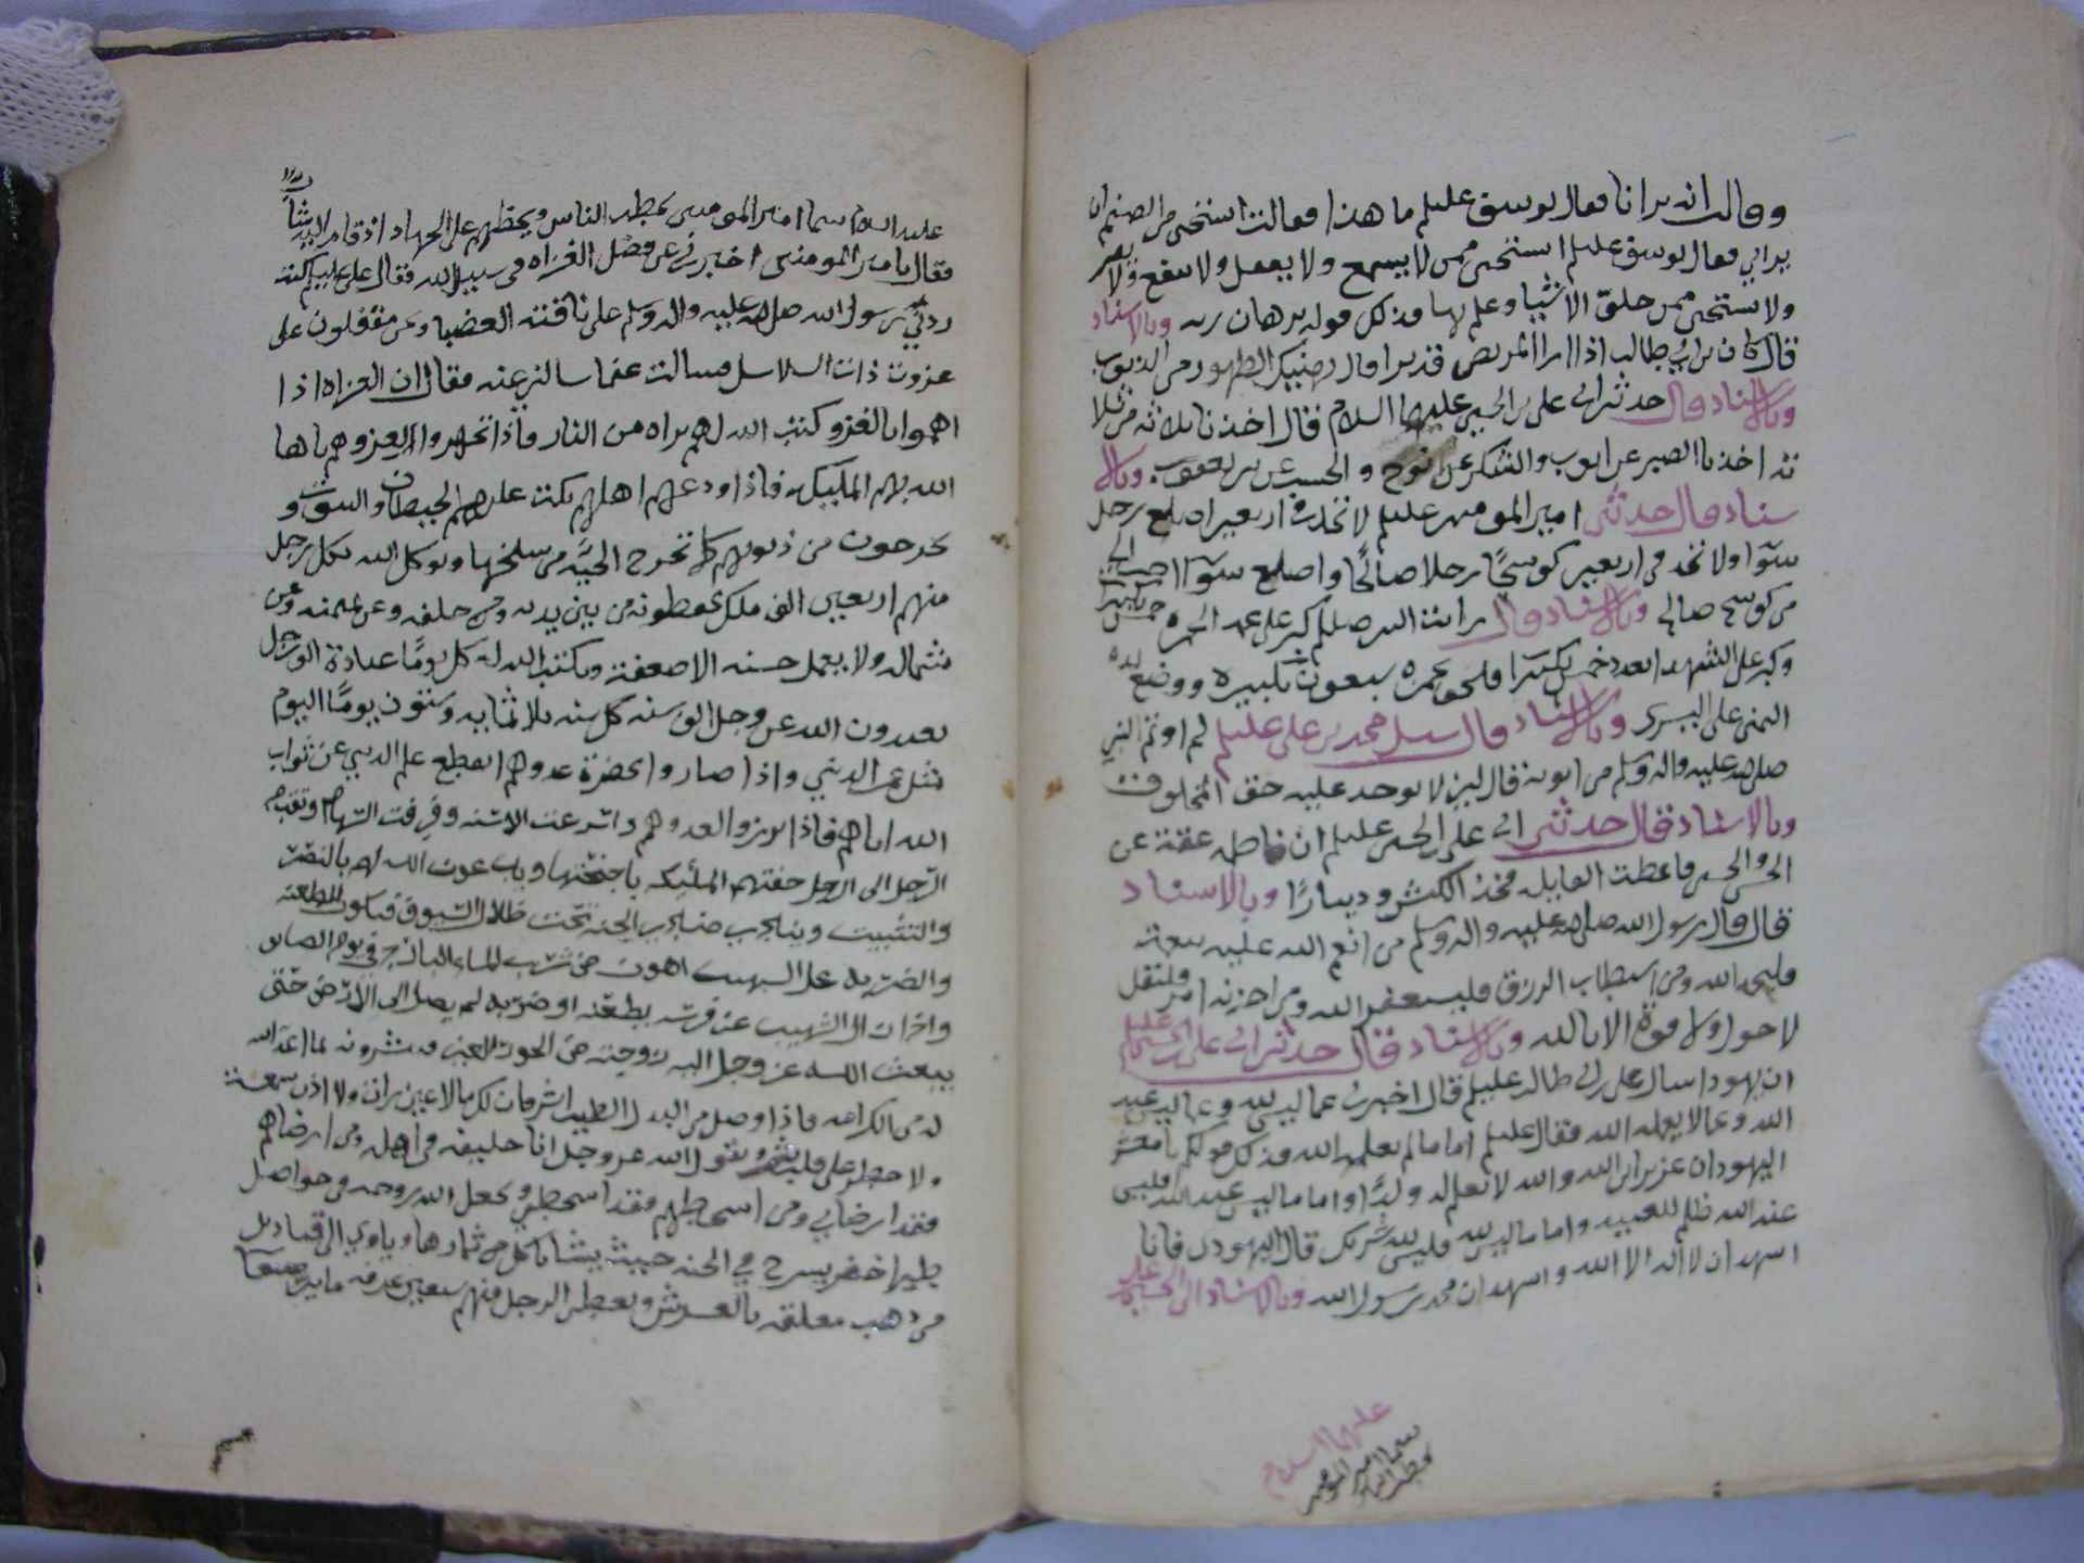 وقالت انه يرانا فقال يوسف عليلم ما هذا فقالت استحيى من الصنم ان
يراني فقال يوسف عليلم استحيى ممن لا يسمع ولا يعقل ولا ينفع ولا يبصر
ولا يستحيى ممن خلق الاشيا وعلمها فذلك قوله برهان ربه وبالاسناد
قال كان بن ابي طالب اذا را المريض قد برا قال يهنيك الطهور من الذنوب
وبالاسناد قال حدثني ابي علي بن الحسين عليهما السلام قال اخذنا ثلاثه من ثلا
ثه اخذنا الصبر عن ايوب والشكر عن نوح والحسد عن بني يعقوب وبالا
سناد قال حدثني امير المومنين عليلم لا تجد في اربعين اصلع رجل
سوا ولا تجد في اربعين كوسجا رجلا صالحا واصلع سوا احب الي
من كوسج صالح وبالاسناد قال رايت النبي صللم كبر على عمه الحمزه خمس تكبيرات
وكبر على الشهدا بعده خمس تكبيرا فلحق حمزه سبعون تكبيره ووضع يده
اليمنى على اليسرى وبالاسناد قال سيل محمد بن علي عليلم لم اوتم النبي
صلى الله عليه واله وسلم من ابويه قال ليلا يوجد عليه حق المخلوق
وبالاسناد قال حدثني ابي علي بن الحسين عليلم ان فاطمه عقة عن
الحسن والحسين فاعطت القابله فخذ الكبش ودينارًا وبالاسناد
قال قال رسول الله صلى الله عليه واله وسلم من انعم الله عليه نعمة
فليحمد الله ومن استبطاب الرزق فليستغفر الله ومن احزنه امر فليقل
لا حول ولا قوة الا بالله وبالاسناد قال حدثني ابي علي بن الحسين عليلم
ان يهوديا سال علي بن ابي طالب عليلم قال اخبرني عما ليس لله وعما ليس عند
الله وعما لا يعلمه الله فقال عليلم اما ما لم يعلمه الله فذلك قولكم يا معشر
اليهود ان عزير ابن الله والله لا يعلم له ولدًا واما ما ليس عند الله فليس
عند الله ظلم للعبيد واما ما ليس لله فليس لله شريك قال اليهودي فانا
اشهد ان لا اله الا الله واشهد ان محمد رسول الله وبالاسناد الى الحسين بن علي
عليهما السلام
بينما امير المومنين
يخطب الناس
عليه السلام بينما امير المومنين يخطب الناس ويحظهم على الجهاد اذ قام اليه شاب
فقال يا امير المومنين اخبرني عن فضل الغزاه في سبيل الله فقال علي عليلم كنت
رديف رسول الله صلى الله عليه واله وسلم على ناقته العضبا ونحن مقفلون على
غزوت ذات السلاسل فسالت عما سالتني عنه فقال ان الغزاه اذا
اهموا بالغزو كتب الله لهم براه من النار فاذا تجهروا الغزوهم باها
الله بهم المليكه فاذا ودعهم اهلهم بكت عليهم الحيطان والبيوت و
يخرجون من ذنوبهم كما تخرج الحيّه من سلخها ويوكل الله بكل رجل
منهم اربعين الف ملك يحفظونه من بين يديه ومن خلفه وعن يمينه وعن
شماله ولا يعمل حسنه الا ضعفت ويكتب الله له كل يومًا عبادة الف رجل
يعبدون الله عز وجل الف سنه كل سنه ثلاثمايه وستون يومًا اليوم
مثل عمر الدنيى واذا صاروا بحضرة عدوهم انقطع علم الدنيى عن ثواب
الله اياهم فاذا برزوا لعدوهم واشرعت الاسنه وفوقت السهام وتقدم
الرجل الى الرجل حفتهم المليكه باجنحتها ويدعون الله لهم بالنصر
والتثبيت وينادي منادي الجنه تحت ظلال السيوف فتكون الطعنه
والضربه على الشهيد اهون من شرب الماء البارد في يوم الصايف
واذا زال الشهيب عن فرسه بطعنه او ضربه لم يصل الى الارض حتى
يبعث الله عز وجل اليه زوجته من الحور العين فتبشرونه بما اعد الله
له من الكرامه فاذا وصل من البدن الطيب ابشر فان لك ما لا عين رات ولا اذن سمعت
ولا خطر على قلب بشر ويقول الله عز وجل انا خليفه في اهله ومن ارضاهم
فقد ارضاني ومن اسخطهم فقد اسخطني ويجعل الله روحه في حواصل
طير اخضر يسرح في الجنه حيث يشا ياكل من ثمارها وياوي الى قناديل
من ذهب معلقه بالعرش ويعطى الرجل منهم سبعين غرفه ما بين صنعا